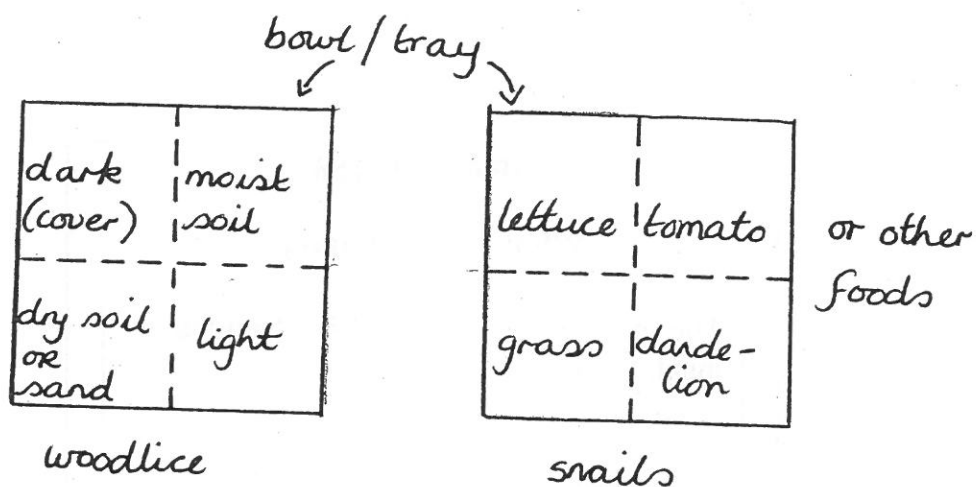 bowl / tray
dark
(cover)
moist
soil
dry soil
OR
sand
light
woodlice
lettuce
tomato
grass
dande-
lion
or other
foods
snails